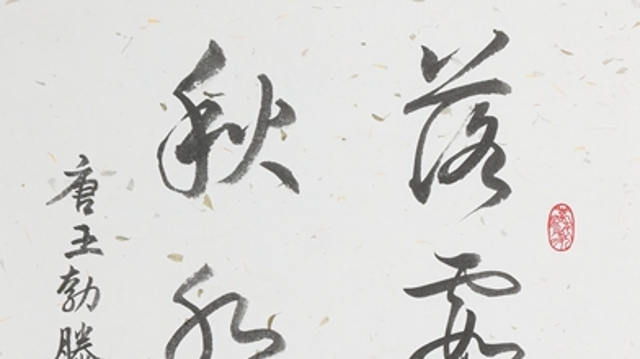 落霞
秋水
唐王勃滕